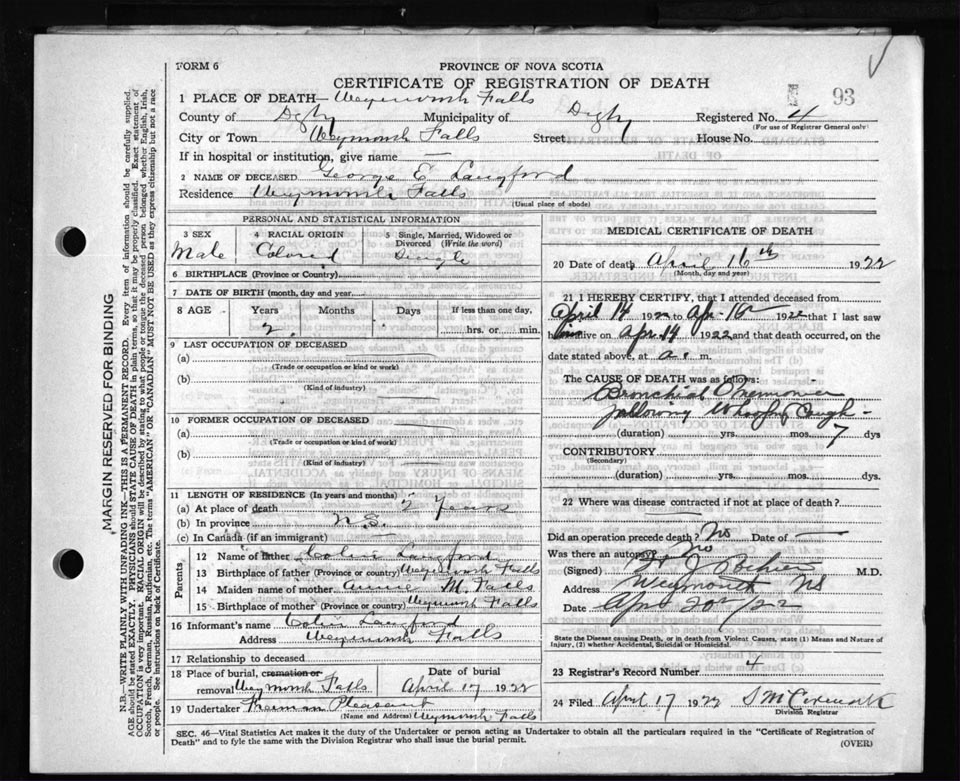 FORM 6
PROVINCE OF NOVA SCOTIA
CERTIFICATE OF REGISTRATION OF DEATH
93
1 PLACE OF DEATH— Weymouth Falls
County of Digby Municipality of Digby Registered No. 4
(For use of Registrar General only)
City or Town Weymouth Falls Street House No.
If in hospital or institution, give name —
2 NAME OF DECEASED George E Langford
Residence Weymouth Falls
(Usual place of abode)
PERSONAL AND STATISTICAL INFORMATION
3 SEX 4 RACIAL ORIGIN 5 Single, Married, Widowed or Divorced (Write the word)
Male Colored Single
6 BIRTHPLACE (Province or Country)
7 DATE OF BIRTH (month, day and year)
8 AGE Years Months Days If less than one day,
2 hrs. or min.
9 LAST OCCUPATION OF DECEASED
(a)
(Trade or occupation or kind or work)
(b)
(Kind of industry)
10 FORMER OCCUPATION OF DECEASED
(a)
(Trade or occupation or kind of work)
(b)
(Kind of industry)
11 LENGTH OF RESIDENCE (In years and months)
(a) At place of death 2 Years
(b) In province N.S.
(c) In Canada (if an immigrant) —
Parents
12 Name of father Colin Langford
13 Birthplace of father (Province or country) Weymouth Falls
14 Maiden name of mother Annie M.
15 Birthplace of mother (Province or country) Weymouth Falls
16 Informant's name Colin Langford
Address Weymouth Falls
17 Relationship to deceased
18 Place of burial, cremation or removal Weymouth Falls Date of burial April 17 1922
19 Undertaker Freeman Pleasant
(Name and Address) Weymouth Falls
MEDICAL CERTIFICATE OF DEATH
20 Date of death April 16th 1922
(Month, day and year)
21 I HEREBY CERTIFY, that I attended deceased from
April 14 1922 to Apr-16 1922 that I last saw
him alive on Apr. 14 1922 and that death occurred, on the
date stated above, at a. m.
The CAUSE OF DEATH was as follows:
Bronchial Pneumonia
following Whooping Cough -
(duration) yrs. mos. 7 dys
CONTRIBUTORY
(Secondary)
(duration) yrs. mos. dys
22 Where was disease contracted if not at place of death?
Did an operation precede death? No Date of —
Was there an autopsy? No
(Signed) M.D.
Address Weymouth NS
Date Apr 20th/22
State the Disease causing Death, or in death from Violent Causes, state (1) Means and Nature of
Injury, (2) whether Accidental, Suicidal or Homicidal.
23 Registrar's Record Number 4
24 Filed April 17 1922
Division Registrar
SEC. 46—Vital Statistics Act makes it the duty of the Undertaker or person acting as Undertaker to obtain all the particulars required in the "Certificate of Registration of
Death" and to fyle the same with the Division Registrar who shall issue the burial permit.
(OVER)
MARGIN RESERVED FOR BINDING
N.B.—WRITE PLAINLY WITH UNFADING INK—THIS IS A PERMANENT RECORD. Every item of information should be carefully supplied.
AGE should be stated EXACTLY. PHYSICIANS should STATE CAUSE OF DEATH in plain terms, so that it may be properly classified. Exact statement of
OCCUPATION is very important. RACIAL ORIGIN will be described by stating to what people or tongue the deceased person belonged whether English, Irish,
Scotch, French, German, Russian, Ruthenian, etc. The terms "AMERICAN" OR "CANADIAN" MUST NOT BE USED as they express citizenship but not a race
or people. See instructions on back of Certificate.